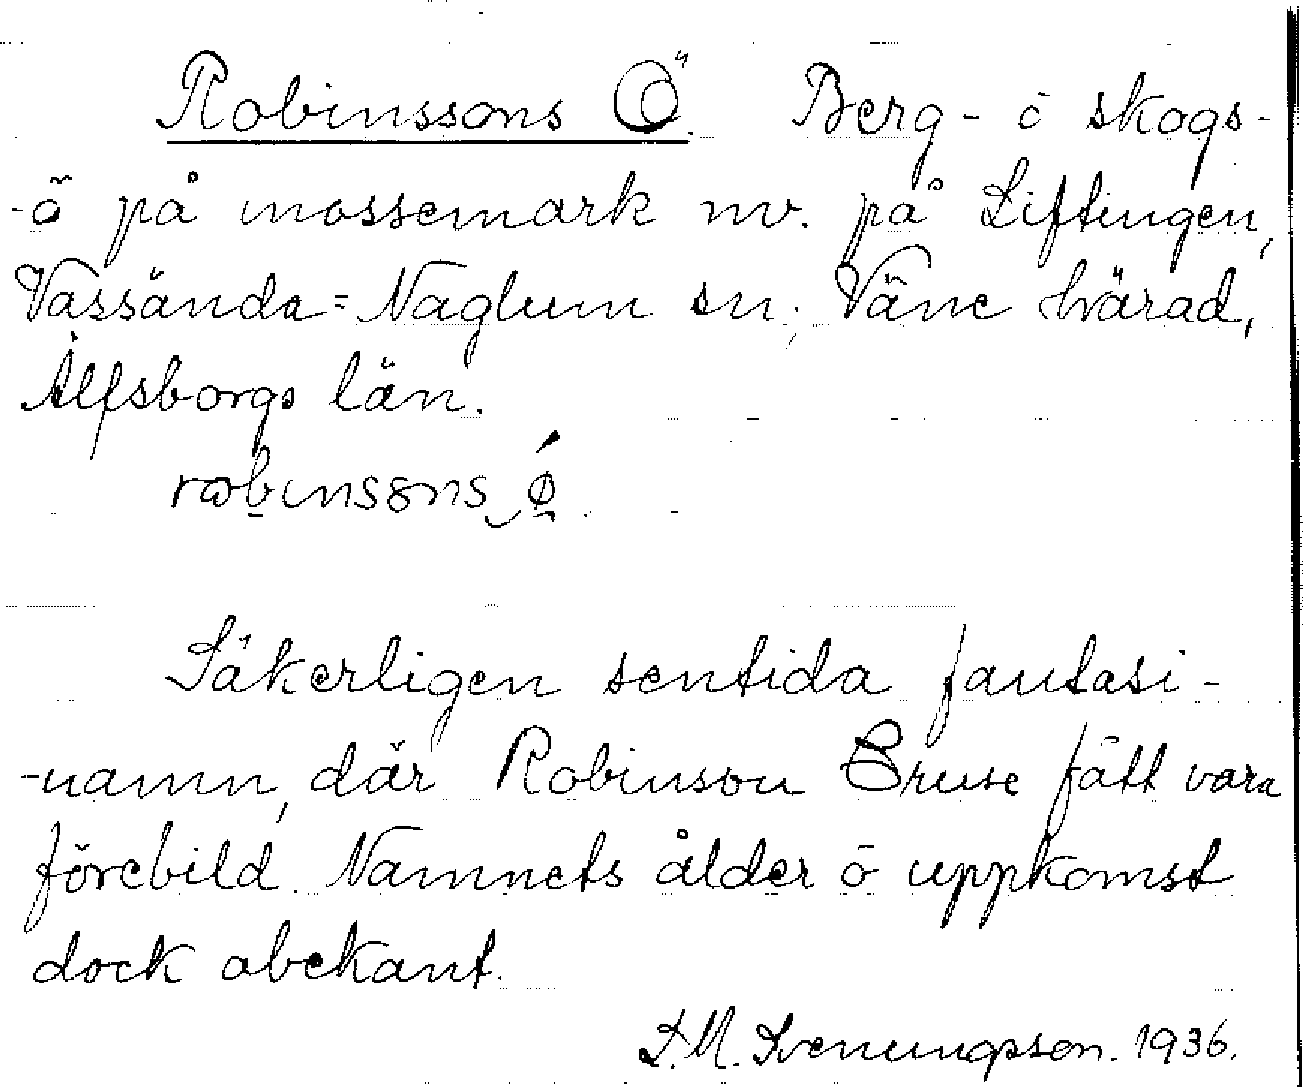 Robinssons Ö. Berg- ō skogs-
-ö på mossemark nv. på Liftingen,
Vassända=Naglum sn; Väne härad,
Älfsborgs län.
robinssons ǿ.
Säkerligen sentida fantasi-
-namn, där Robinson Cruse fått vara
förebild. Namnets ålder ō uppkomst
dock obekant.
D.M. Svenungsson. 1936.